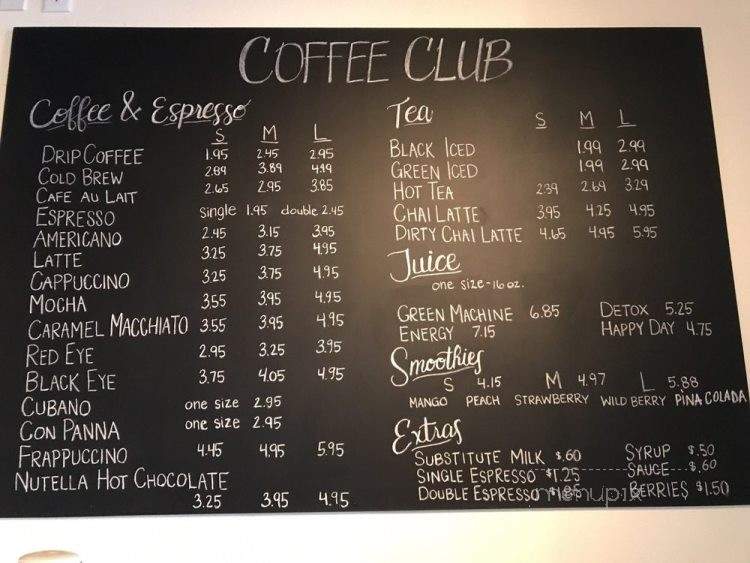 COFFEE CLUB
Coffee & Espresso
S M L
DRIP COFFEE 1.95 2.45 2.95
COLD BREW 2.89 3.89 4.19
CAFE AU LAIT 2.65 2.95 3.85
ESPRESSO single 1.95 double 2.45
AMERICANO 2.45 3.15 3.95
LATTE 3.25 3.75 4.95
CAPPUCCINO 3.25 3.75 4.95
MOCHA 3.55 3.95 4.95
CARAMEL MACCHIATO 3.55 3.95 4.95
RED EYE 2.95 3.25 3.95
BLACK EYE 3.75 4.05 4.95
CUBANO one size 2.95
CON PANNA one size 2.95
FRAPPUCCINO 4.45 4.95 5.95
NUTELLA HOT CHOCOLATE
3.25 3.95 4.95
Tea
S M L
BLACK ICED 1.99 2.99
GREEN ICED 1.99 2.99
HOT TEA 2.39 2.69 3.29
CHAI LATTE 3.95 4.25 4.95
DIRTY CHAI LATTE 4.65 4.95 5.95
Juice
one size-16 oz.
GREEN MACHINE 6.85 DETOX 5.25
ENERGY 7.15 HAPPY DAY 4.75
Smoothies
S 4.15 M 4.97 L 5.88
MANGO PEACH STRAWBERRY WILD BERRY PINA COLADA
Extras
SUBSTITUTE MILK $.60 SYRUP $.50
SINGLE ESPRESSO $1.25 SAUCE $.60
DOUBLE ESPRESSO $1.85 BERRIES $1.50
menupix